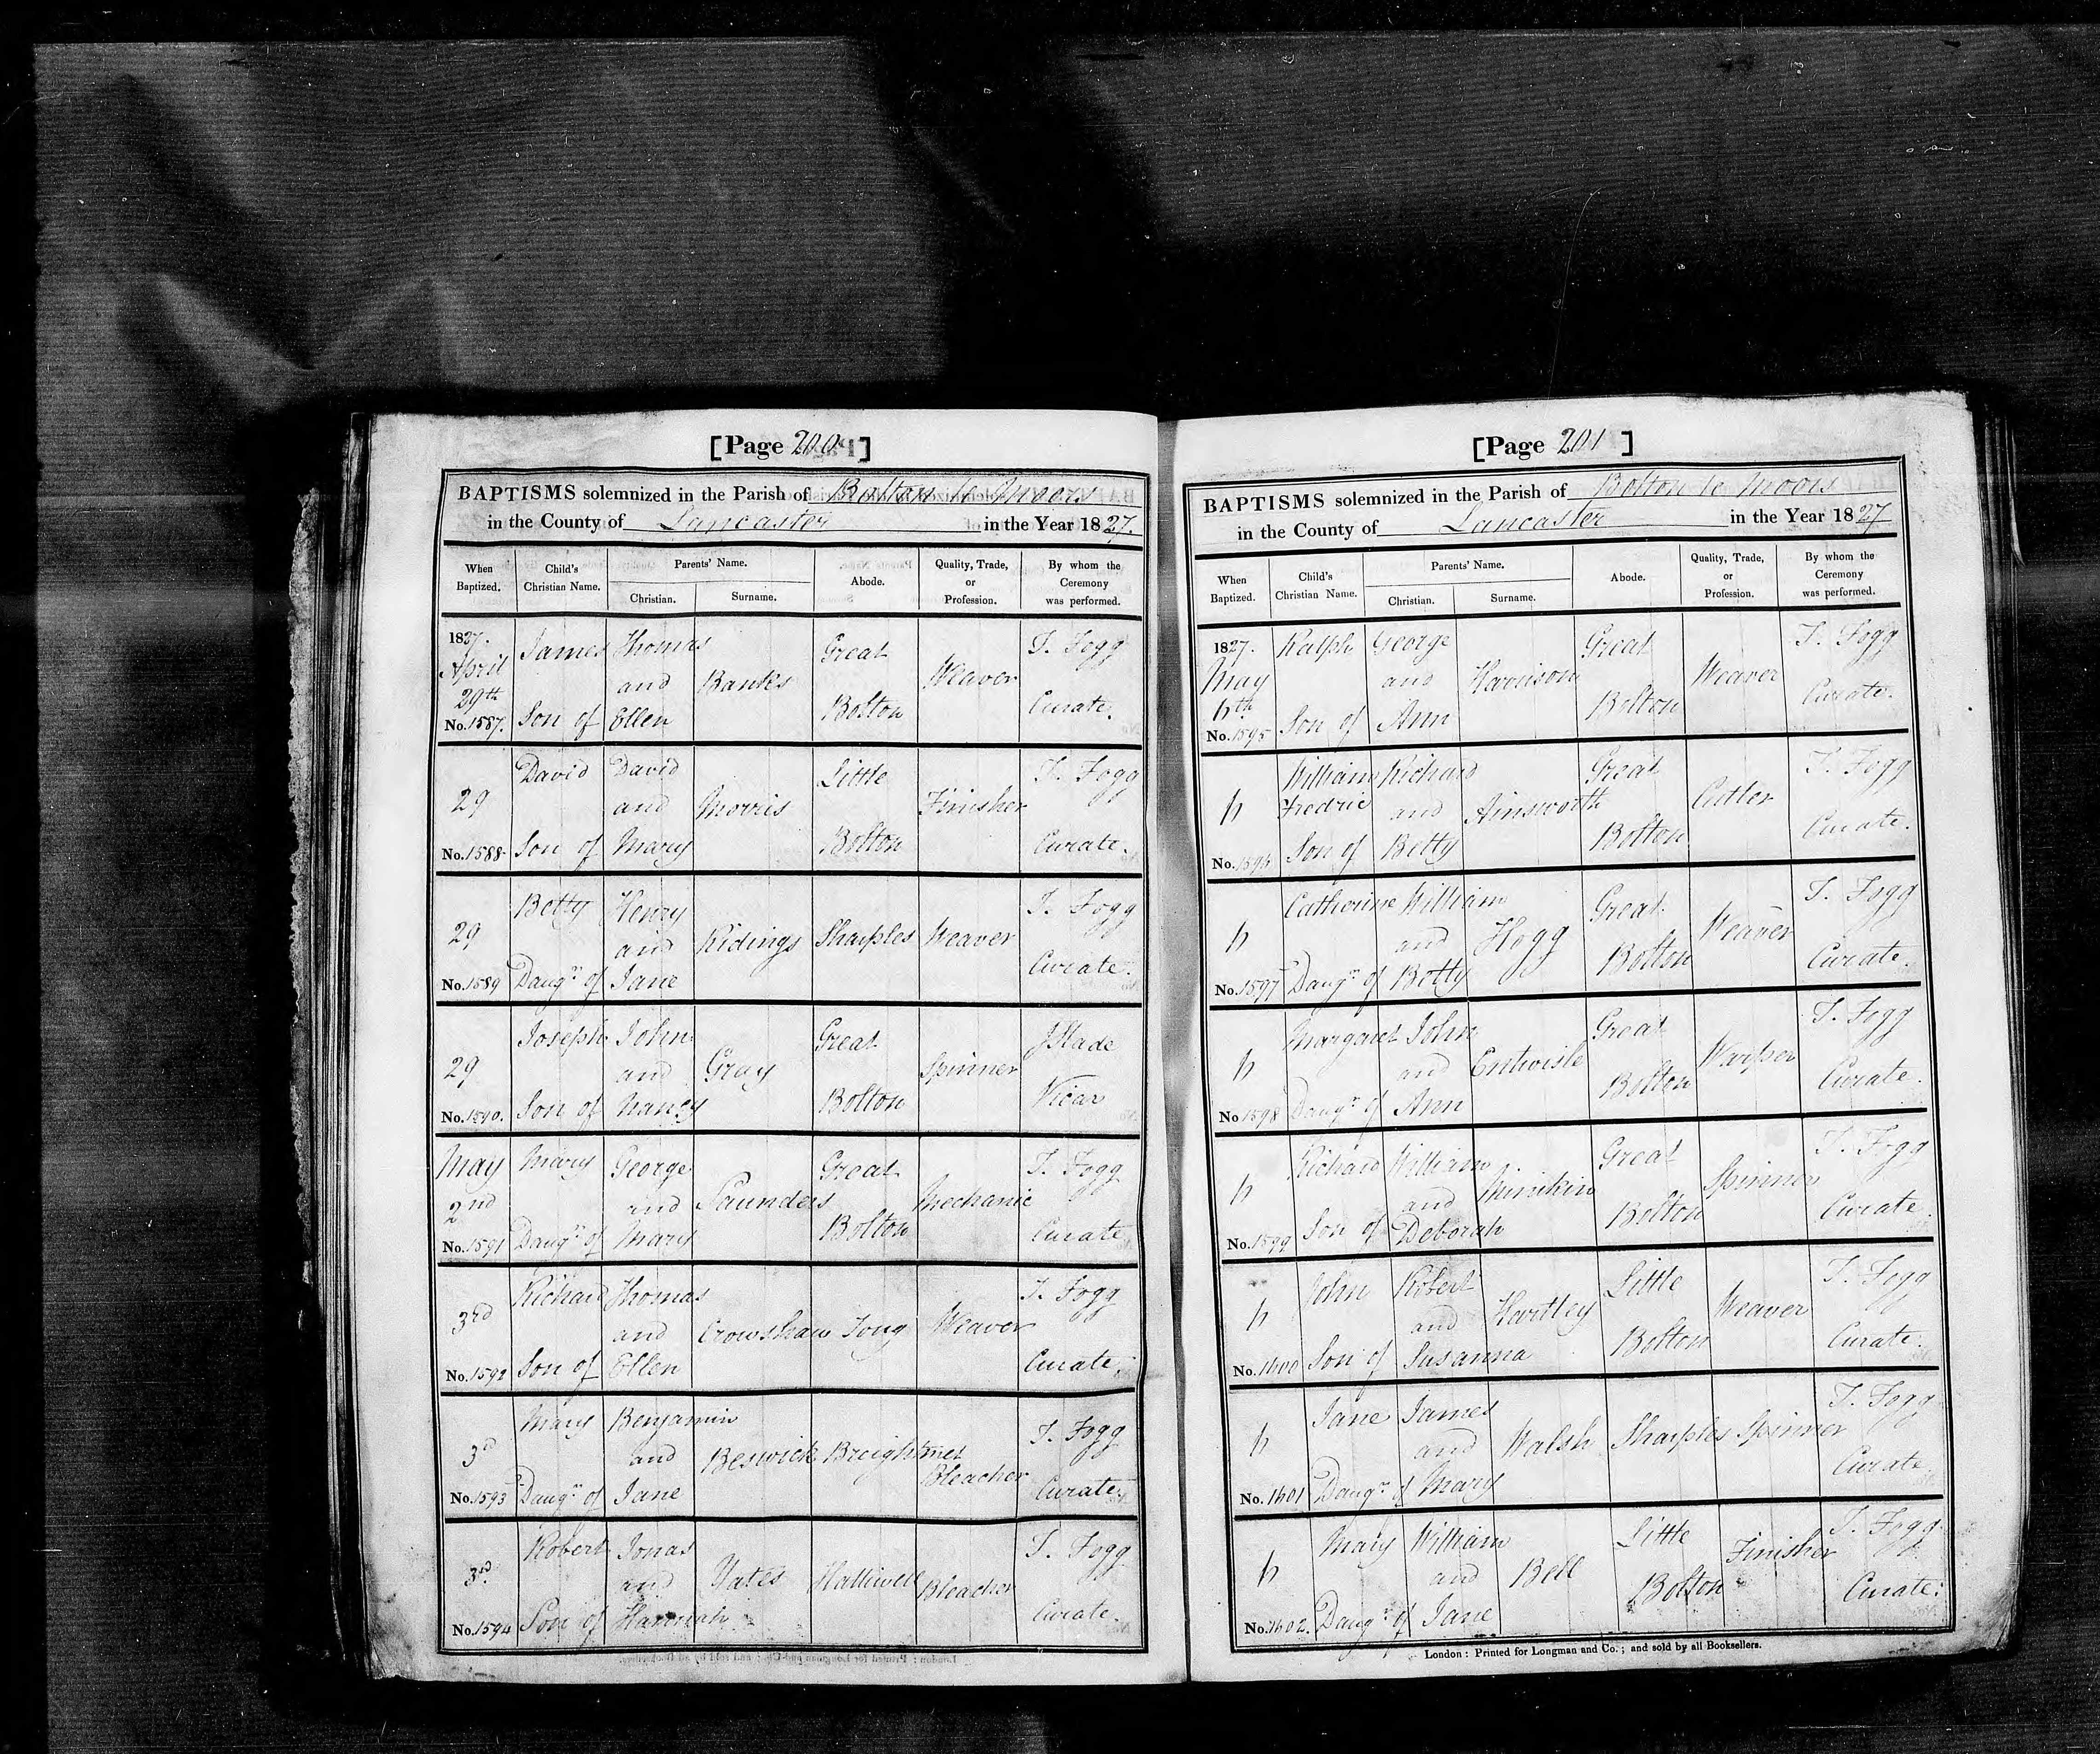 [Page 200]
BAPTISMS solemnized in the Parish of Bolton le Moors
in the County of Lancaster in the Year 1827.
When Baptized. Child's Christian Name. Parents' Name. Christian. Surname. Abode. Quality, Trade, or Profession. By whom the Ceremony was performed.
1827. James Thomas Great T. Fogg
April and Banks Weaver
29th
No. 1587. Son of Ellen Bolton Curate.
David David Little T. Fogg
29 and Morris Finisher
No. 1588. Son of Mary Bolton Curate.
Betty Henry T. Fogg
29 and Ridings Sharples Weaver
No. 1589 Daugr. of Jane Curate.
Joseph John Great J Slade
29 and Gray Spinner
No. 1590. Son of Nancy Bolton Vicar
May Mary George Great T. Fogg
2nd and Saunders Mechanic
No. 1591 Daugr. of Mary Bolton Curate
Richard Thomas T. Fogg
3rd and Crowshaw Tong Weaver
No. 1592 Son of Ellen Curate.
Mary Benjamin T. Fogg
3rd and Beswick Breightmet Bleacher
No. 1593 Daugr. of Jane Curate.
Robert Jonas T. Fogg
3rd. and Yates Halliwell Bleacher
No. 1594 Son of Hannah Curate.
[Page 201]
BAPTISMS solemnized in the Parish of Bolton le Moors
in the County of Lancaster in the Year 1827
When Baptized. Child's Christian Name. Parents' Name. Christian. Surname. Abode. Quality, Trade, or Profession. By whom the Ceremony was performed.
1827. Ralph George Great T. Fogg
May and Harrison Weaver
6th
No. 1595 Son of Ann Bolton Curate.
William Richard Great T. Fogg
6 Fredric and Ainsworth Cutler
No. 1596 Son of Betty Bolton Curate.
Catherine William Great T. Fogg
6 and Hogg Weaver
No. 1597 Daugr. of Betty Bolton Curate.
Margaret John Great T. Fogg
6 and Entwisle Warper
No 1598 Daugr. of Ann Bolton Curate.
Richard William Great T. Fogg
6 and Minikin Spinner
No. 1599 Son of Deborah Bolton Curate.
John Robert Little T. Fogg
6 and Hartley Weaver
No. 1600 Son of Susanna Bolton Curate.
Jane James T. Fogg
6 and Walsh Sharples Spinner
No. 1601 Daugr. of Mary Curate
Mary William Little T. Fogg
6 and Bell Finisher
No. 1602. Daugr. of Jane Bolton Curate.
London: Printed for Longman and Co.; and sold by all Booksellers.